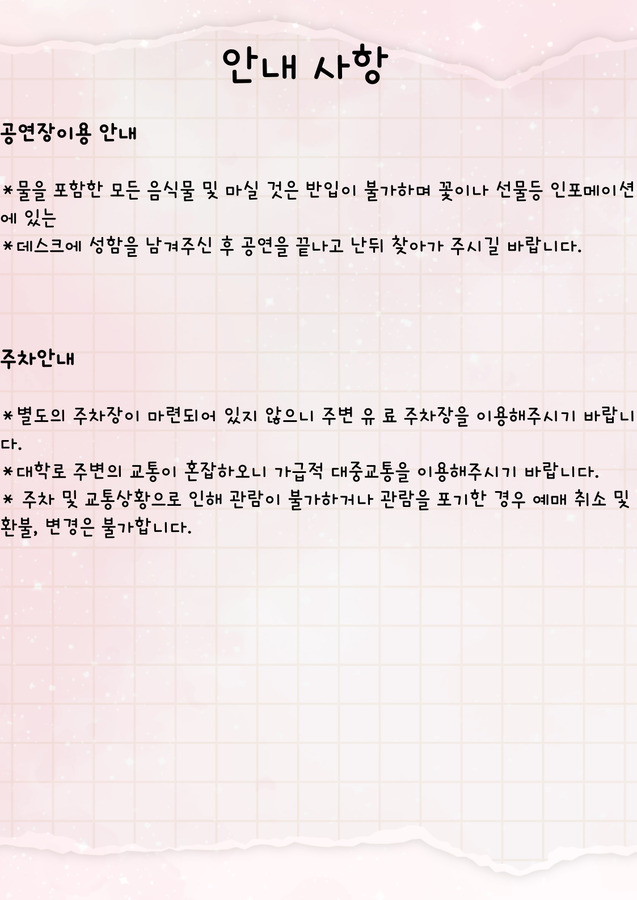 안내 사항
공연장이용 안내
*물을 포함한 모든 음식물 및 마실 것은 반입이 불가하며 꽃이나 선물등 인포메이션
에 있는
*데스크에 성함을 남겨주신 후 공연을 끝나고 난뒤 찾아가 주시길 바랍니다.
주차안내
*별도의 주차장이 마련되어 있지 않으니 주변 유 료 주차장을 이용해주시기 바랍니
다.
*대학로 주변의 교통이 혼잡하오니 가급적 대중교통을 이용해주시기 바랍니다.
* 주차 및 교통상황으로 인해 관람이 불가하거나 관람을 포기한 경우 예매 취소 및
환불, 변경은 불가합니다.